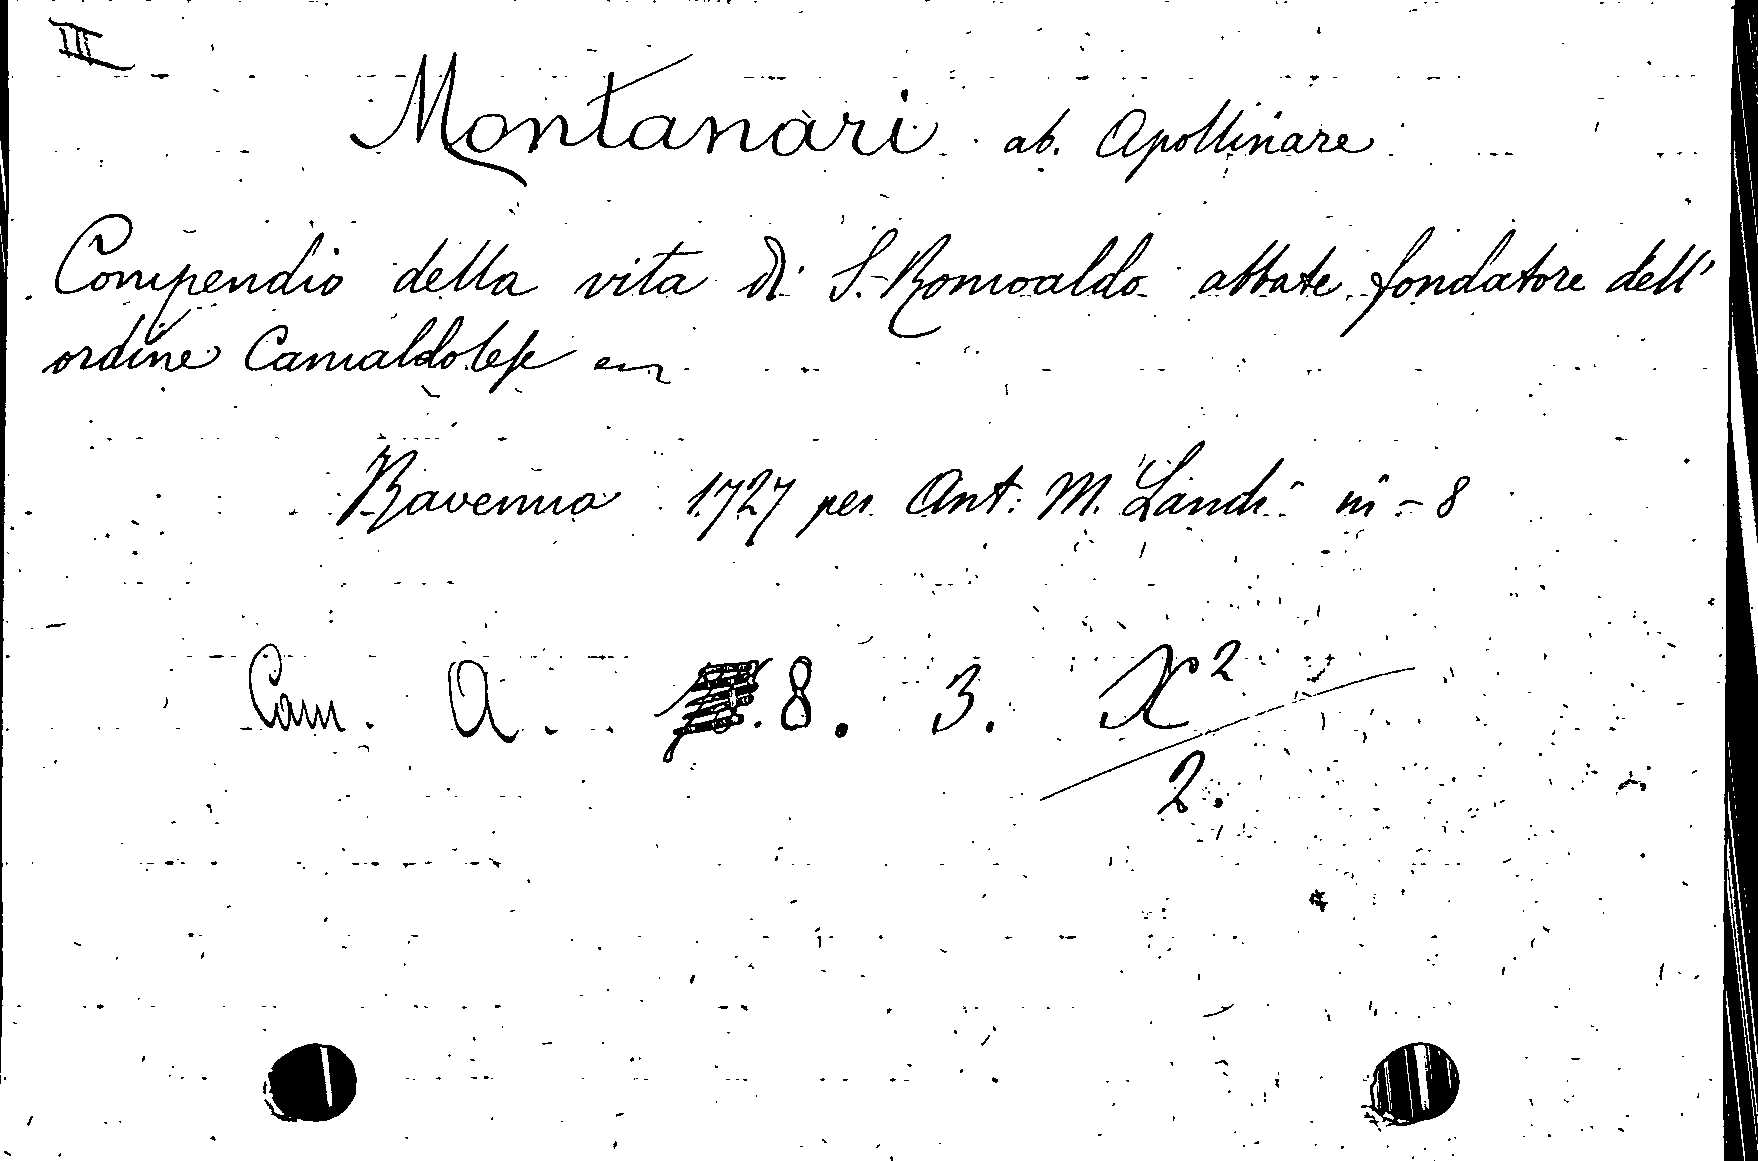 III
Montanari ab. Apollinare
Compendio della vita di S. Romoaldo abbate fondatore dell'
ordine Camaldolese
Ravenna 1727 per Ant: M. Landi in-8
Cam. A. 8. 3. X²
2.